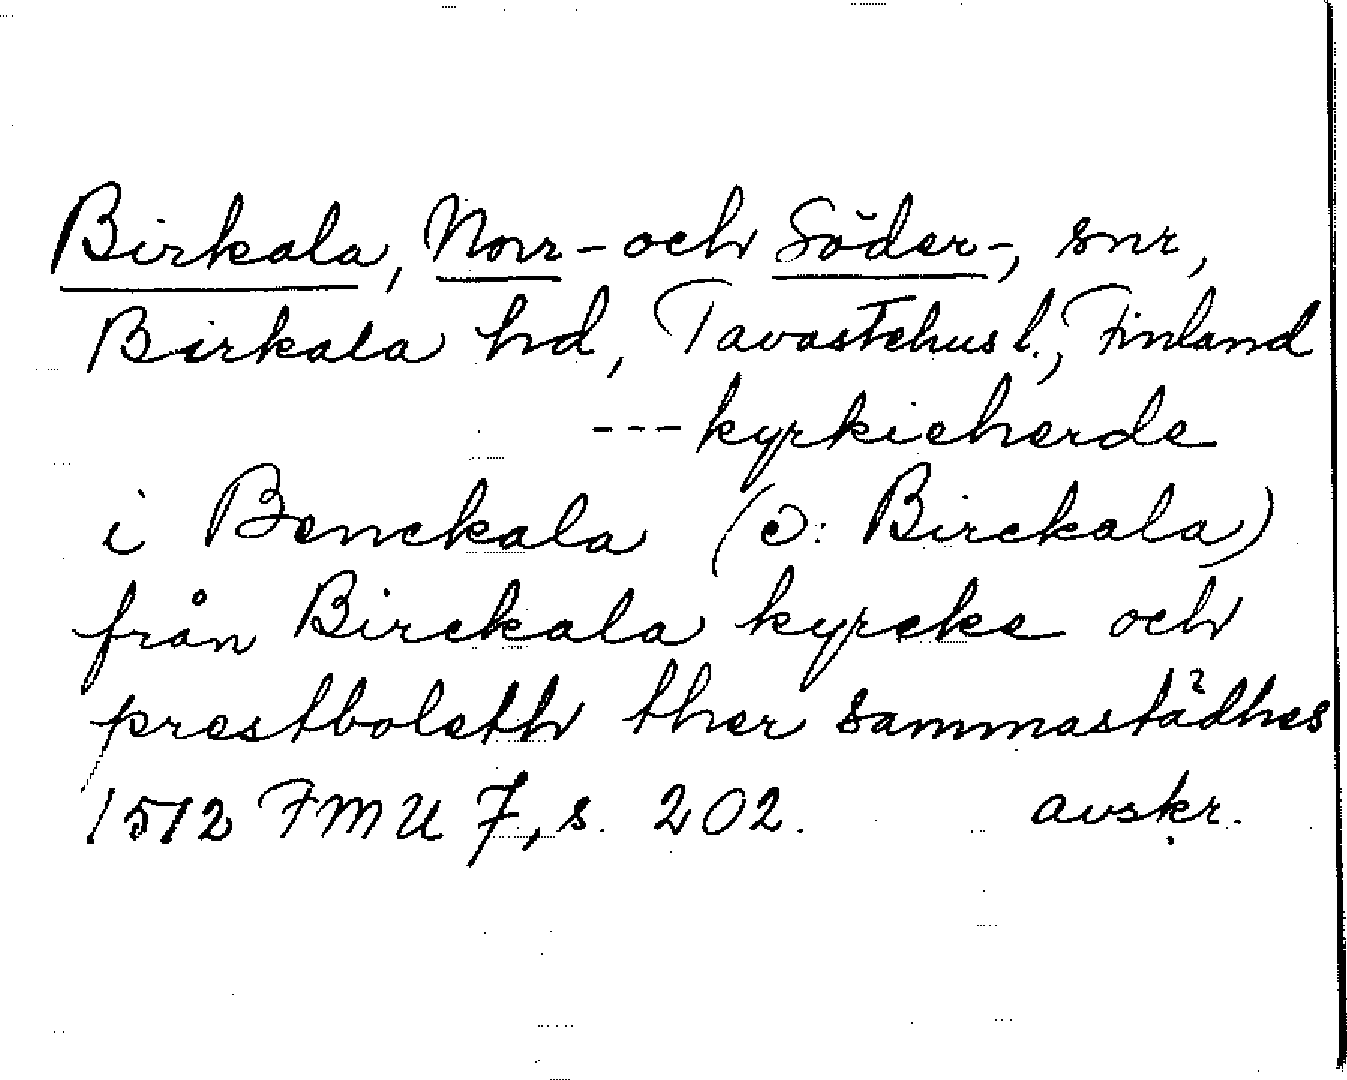 Birkala, Norr- och Söder-, snr,
Birkala hd, Tavastehus l., Finland
--- kyrkieherde
i Benckala (ɔ: Birckala)
från Birckala kyrcke och
prestboleth ther sammastädhes
1512 FMU 7, s. 202. avskr.